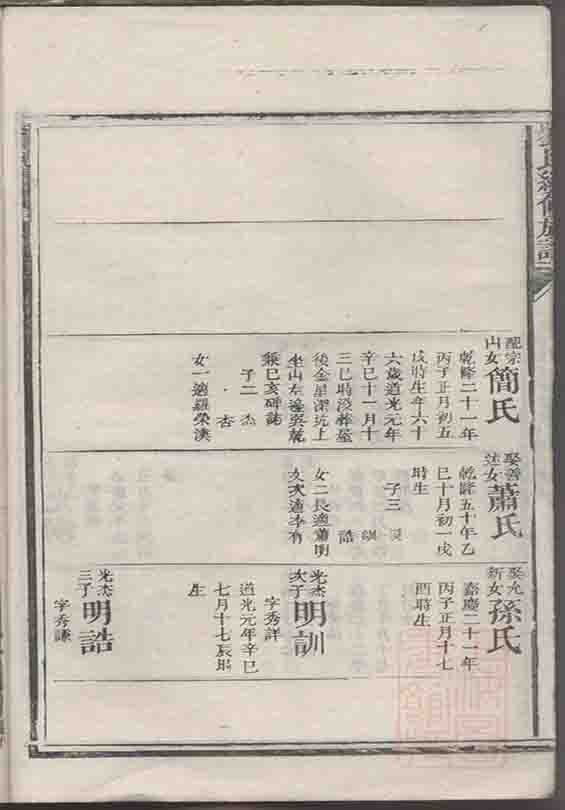 氏續修族譜
配宗山女簡氏
乾隆二十一年
丙子正月初五
戌時生年六十
六歲道光元年
辛巳十一月十
三巳時沒葬屋
後金星深坑上
坐山左邊巽乾
兼巳亥碑誌
子二 杰
杏
女一適羅榮漢
娶善女蕭氏
乾隆五十年乙
巳十月初一戌
時生
子三
訓
誥
女二長適蕭明
次適李有
娶九新女孫氏
嘉慶二十一年
丙子正月十七
酉時生
光杰次子明訓
字秀詳
道光元年辛巳
七月十七辰時
生
光杰三子明誥
字秀謙